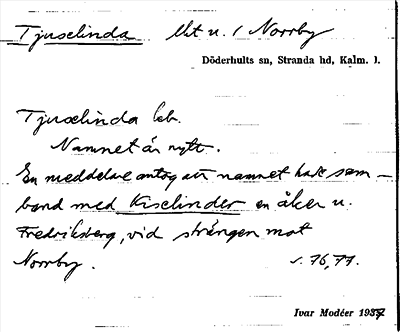 Tjuselinda Ut u. / Norrby
Döderhults sn, Stranda hd, Kalm. l.
Tjuselinda leb.
Namnet är nytt.
En meddelare antog att namnet hade sam-
band med Kiselinder en åker u.
Fredriksberg, vid strängen mot
Norrby. s. 76, 77.
Ivar Modéer 1937